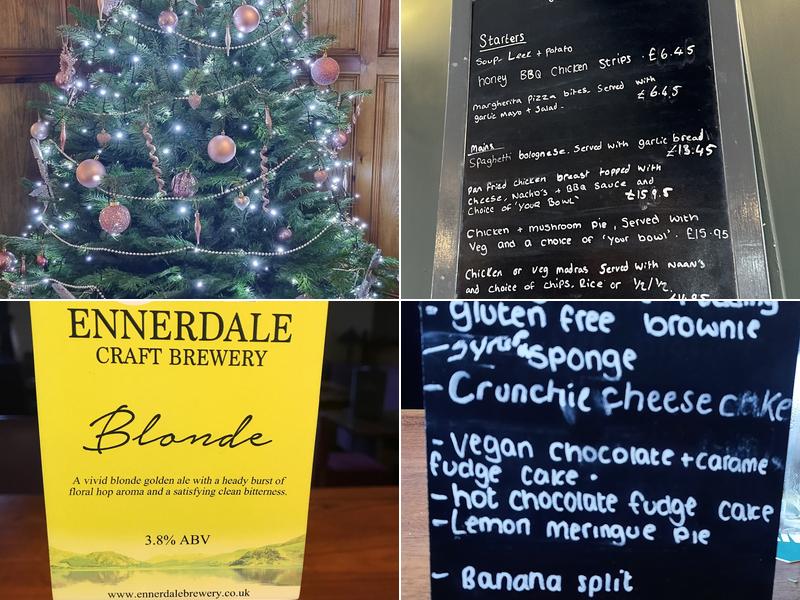 Starters
Soup - Leek + Potato
honey BBQ Chicken Strips . £6.45
margherita Pizza bites. Served with
garlic Mayo + Salad. £6.45
Mains
Spaghetti bolognese. Served with garlic bread
£13.45
Pan fried chicken breast topped with
cheese, Nacho's + BBQ Sauce and
Choice of 'YOUR BOWL' £15.95
Chicken + mushroom Pie, Served with
Veg and a choice of 'your bowl'. £15.95
Chicken or veg madras Served with NAAN'S
and choice of chips, Rice or ½/½
ENNERDALE
CRAFT BREWERY
Blonde
A vivid blonde golden ale with a heady burst of
floral hop aroma and a satisfying clean bitterness.
3.8% ABV
www.ennerdalebrewery.co.uk
- gluten free brownie
- Syrup sponge
- Crunchie cheese cake
- Vegan chocolate + carame
fudge cake .
- hot chocolate fudge cake
- Lemon meringue pie
- Banana split